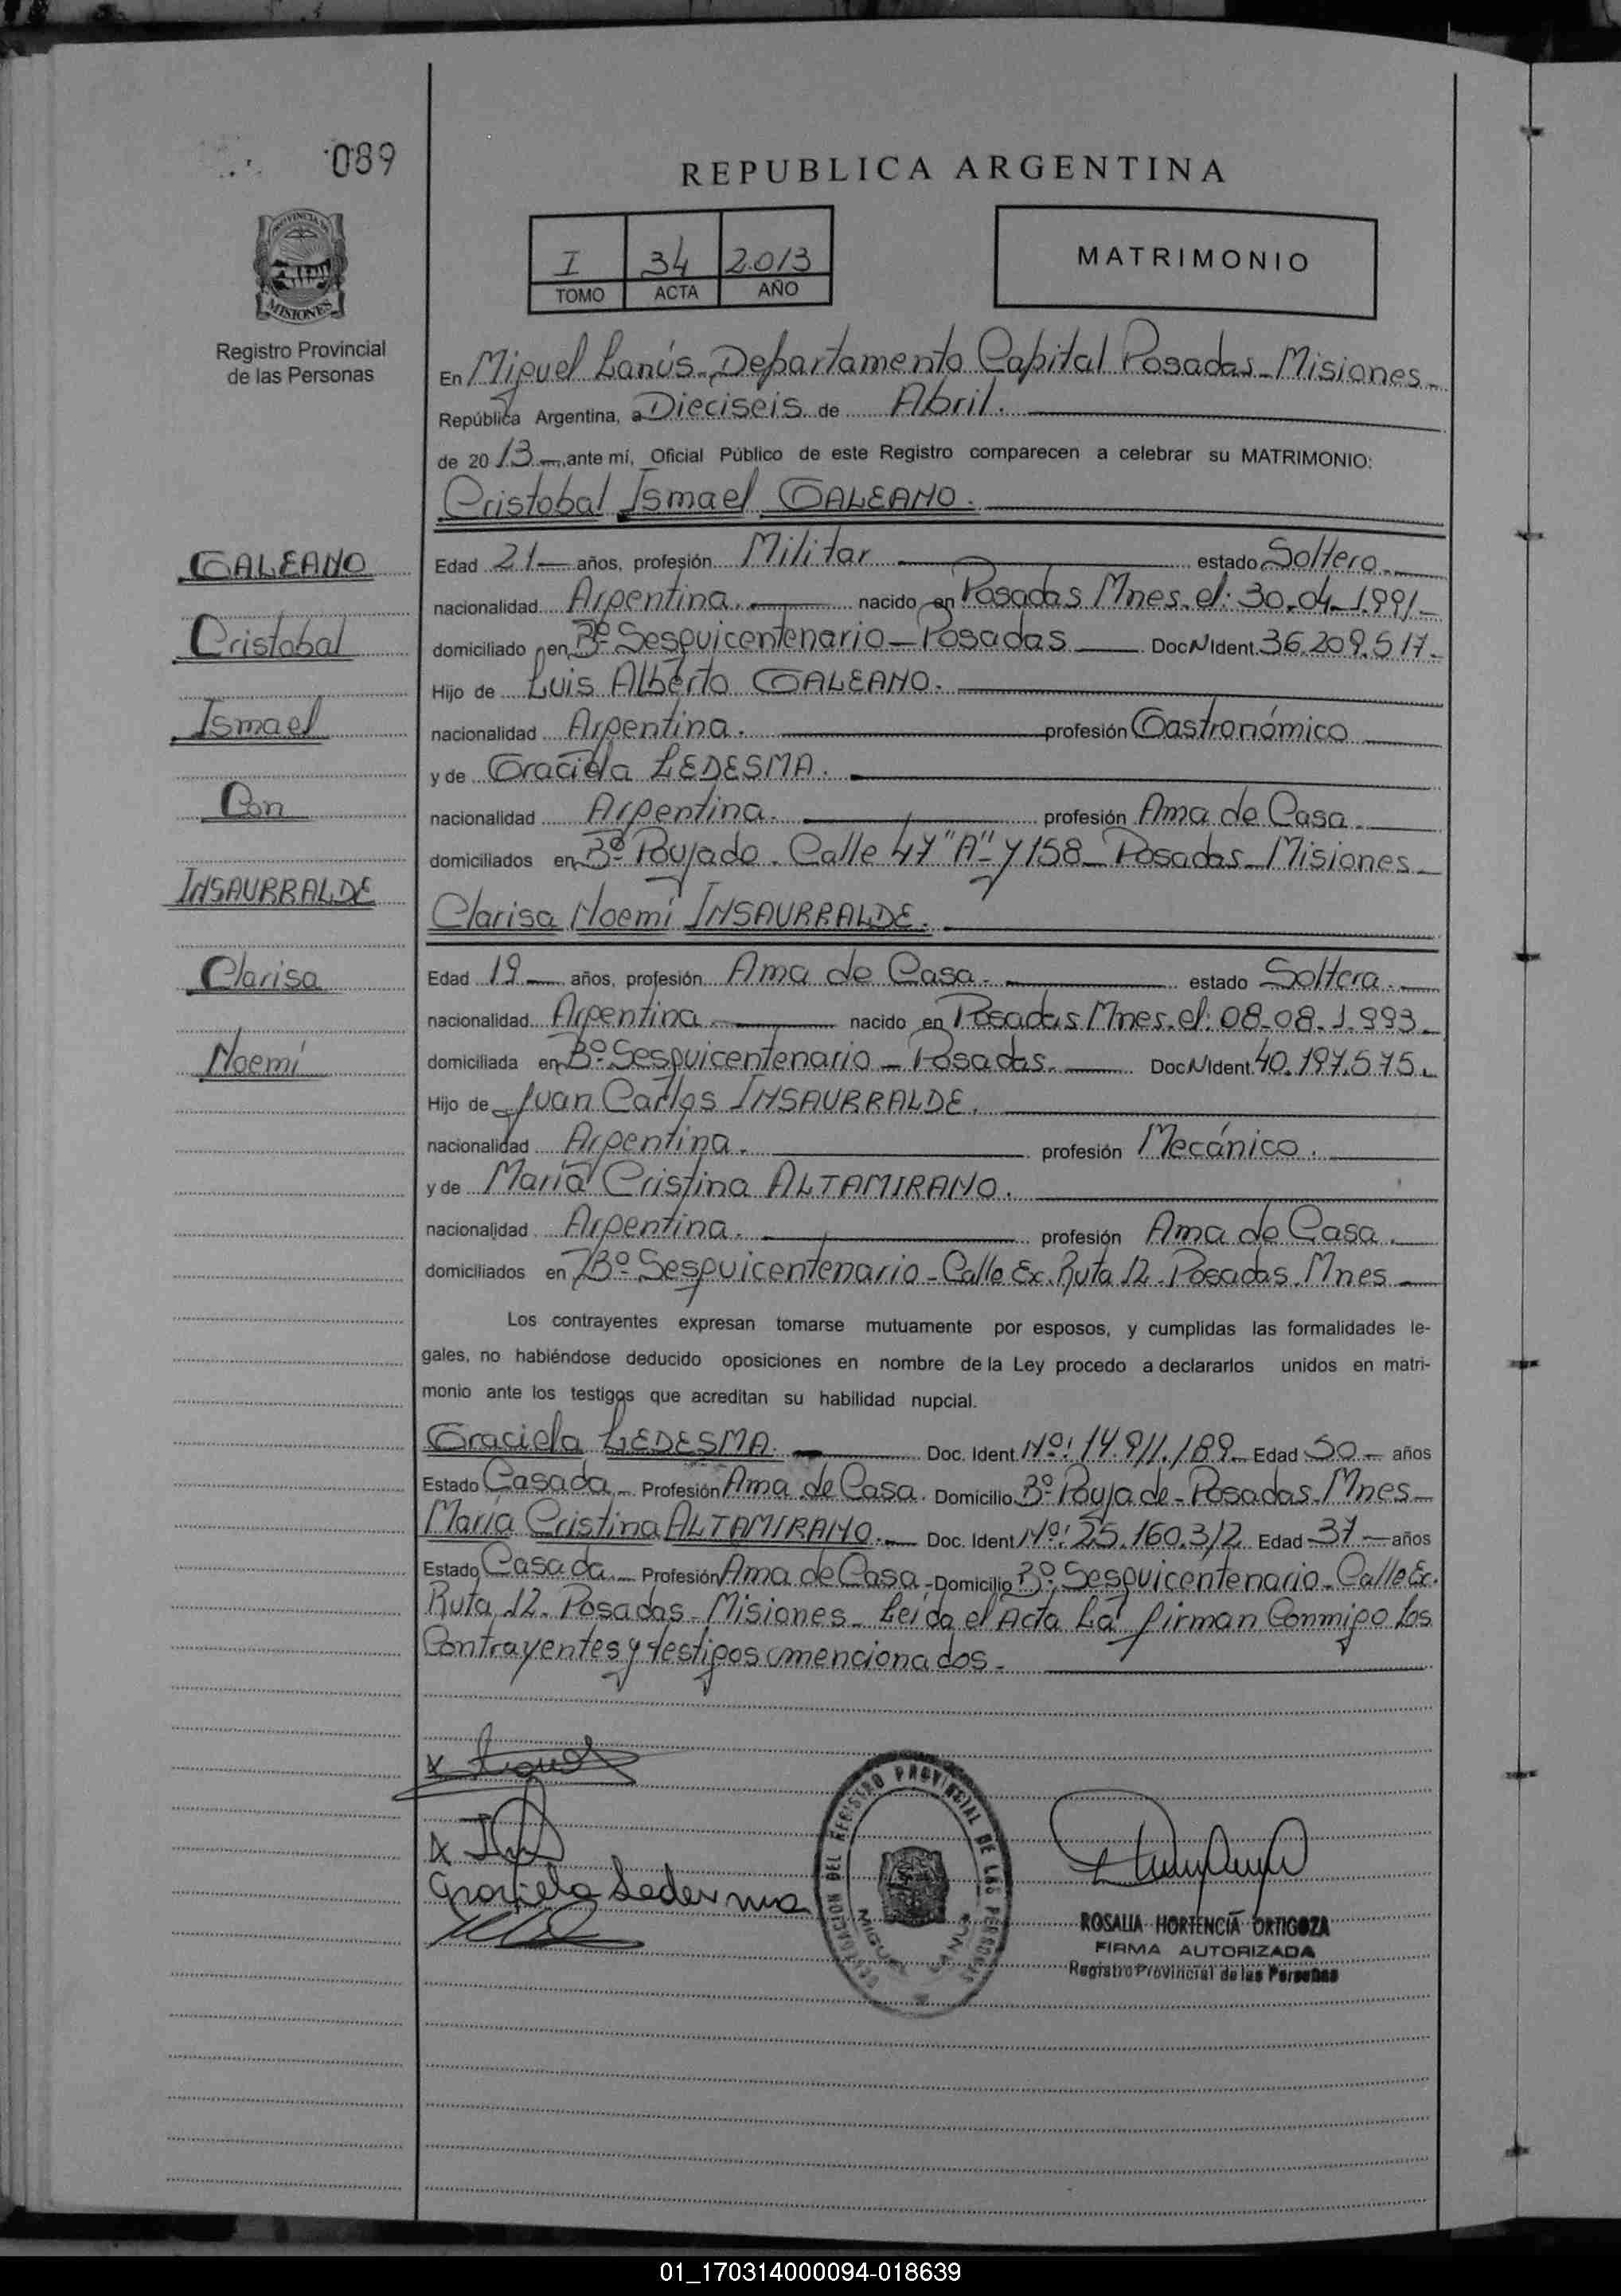 089
REPUBLICA ARGENTINA
PROVINCIA DE
MISIONES
I 34 2.013
TOMO ACTA AÑO
MATRIMONIO
Registro Provincial
de las Personas
En Miguel Lanús - Departamento Capital Posadas - Misiones -
República Argentina, a Dieciseis de Abril.
de 20 13 - ante mí, Oficial Público de este Registro comparecen a celebrar su MATRIMONIO:
Cristobal Ismael GALEANO.
GALEANO
Cristobal
Ismael
Con
INSAURRALDE
Clarisa
Noemí
Edad 21 - años, profesión Militar estado Soltero -
nacionalidad Argentina. nacido en Posadas Mnes. el: 30-04-1.991-
domiciliado en Bº Sesquicentenario - Posadas Doc N Ident. 36.209.517-
Hijo de Luis Alberto GALEANO.
nacionalidad Argentina. profesión Gastronómico
y de Graciela LEDESMA.
nacionalidad Argentina. profesión Ama de Casa
domiciliados en Bº Poujade - Calle 47 "A" y 158 - Posadas - Misiones -
Clarisa Noemí INSAURRALDE.
Edad 19 - años, profesión Ama de Casa - estado Soltera.
nacionalidad Argentina nacido en Posadas Mnes. el: 08-08-1.993-
domiciliada en Bº Sesquicentenario - Posadas. Doc N Ident. 40.197.575-
Hijo de Juan Carlos INSAURRALDE.
nacionalidad Argentina. profesión Mecánico.
y de María Cristina ALTAMIRANO.
nacionalidad Argentina. profesión Ama de Casa.
domiciliados en Bº Sesquicentenario - Calle Ex. Ruta 12 - Posadas. Mnes
Los contrayentes expresan tomarse mutuamente por esposos, y cumplidas las formalidades le-
gales, no habiéndose deducido oposiciones en nombre de la Ley procedo a declararlos unidos en matri-
monio ante los testigos que acreditan su habilidad nupcial.
Graciela LEDESMA. Doc. Ident. Nº: 14.911.189 - Edad 50 - años
Estado Casada - Profesión Ama de Casa. Domicilio Bº Poujade - Posadas - Mnes -
María Cristina ALTAMIRANO. Doc. Ident Nº: 25.160.312 Edad 37 - años
Estado Casada - Profesión Ama de Casa - Domicilio Bº Sesquicentenario - Calle Ex.
Ruta 12 - Posadas - Misiones - Leída el Acta La firman Conmigo Los
Contrayentes y testigos mencionados -
Graciela Ledesma
DELEGACION DEL REGISTRO PROVINCIAL DE LAS PERSONAS
MIGUEL LANUS
ROSALIA HORTENCIA ORTIGOZA
FIRMA AUTORIZADA
Registro Provincial de las Personas
01_170314000094-018639